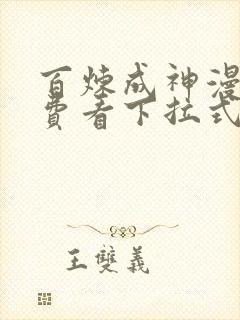 百炼成神漫
费看下拉式
王雙義